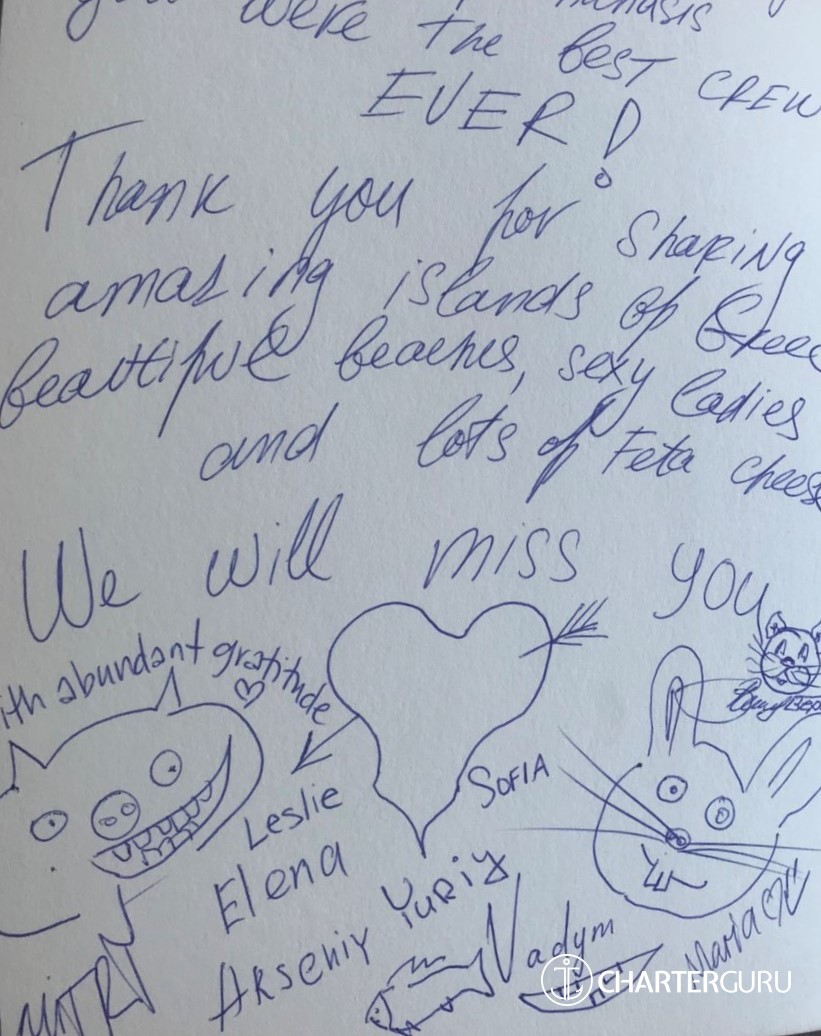 you were the best CREW
EVER!
Thank you for Sharing
amazing islands of Greec
beautiful beaches, sexy ladies
and lots of Feta chees
We will miss you
ith abundant gratitude
SOFIA
Leslie
Elena
Yuriy
Arseniy
Vadym
Maria
CHARTERGURU